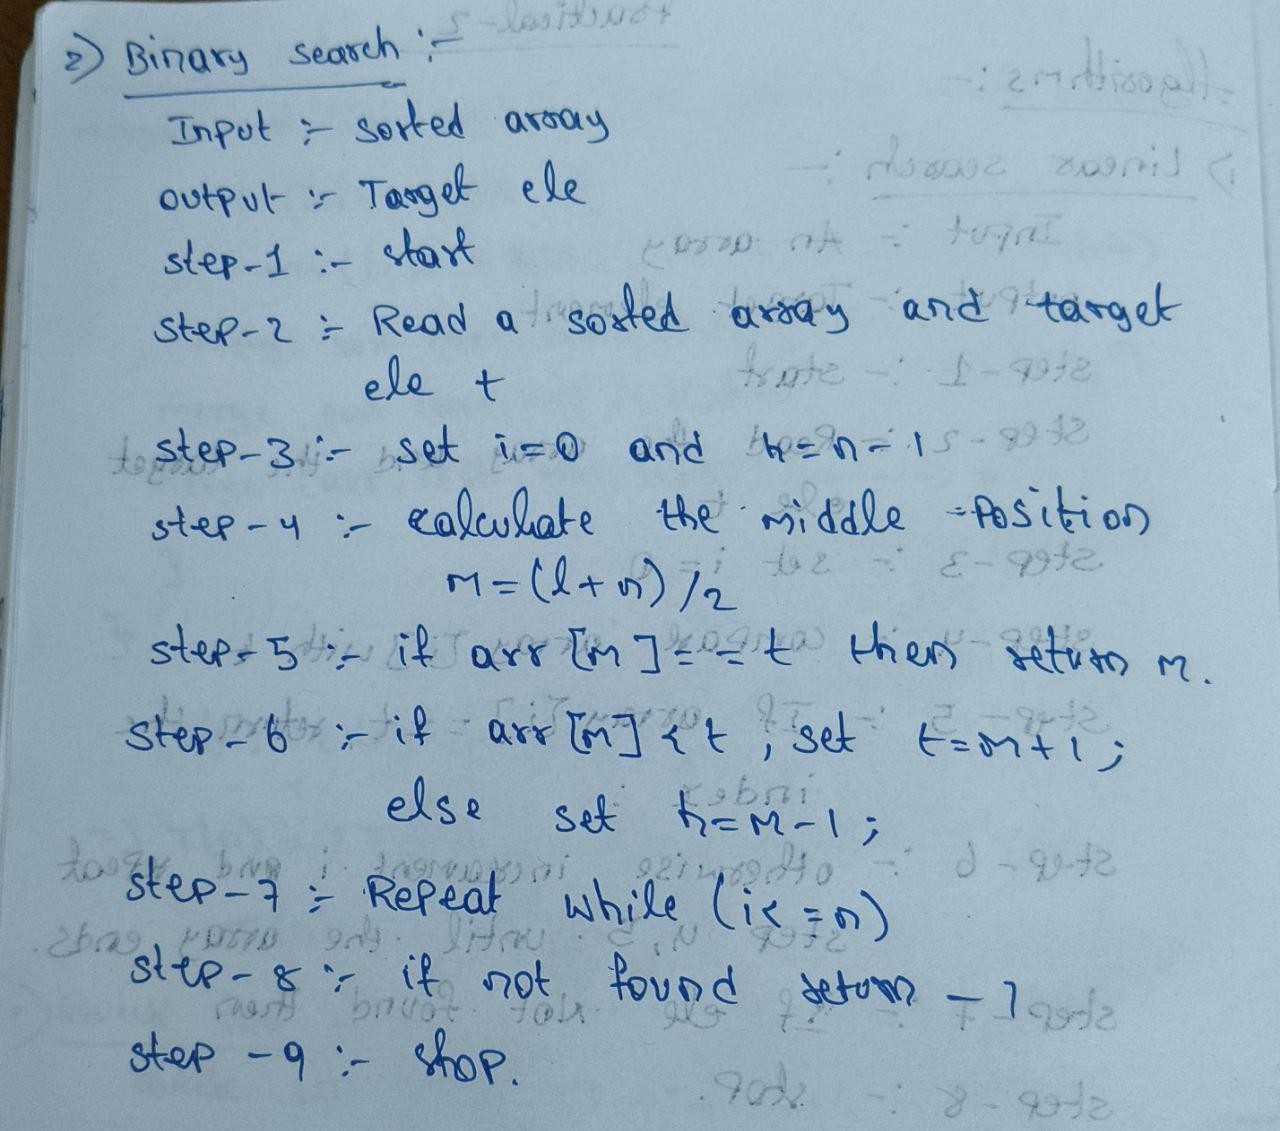 2) Binary search :-
Input :- sorted array
output :- Target ele
step-1 :- start
step-2 :- Read a sorted array and target
ele t
step-3 :- set i=0 and h=n-1
step-4 :- calculate the middle position
m=(l+n)/2
step-5 :- if arr[m]==t then return m.
step-6 :- if arr[m]<t, set t=m+1;
else set h=m-1;
step-7 :- Repeat while (i<=n)
step-8 :- if not found return -1
step-9 :- stop.